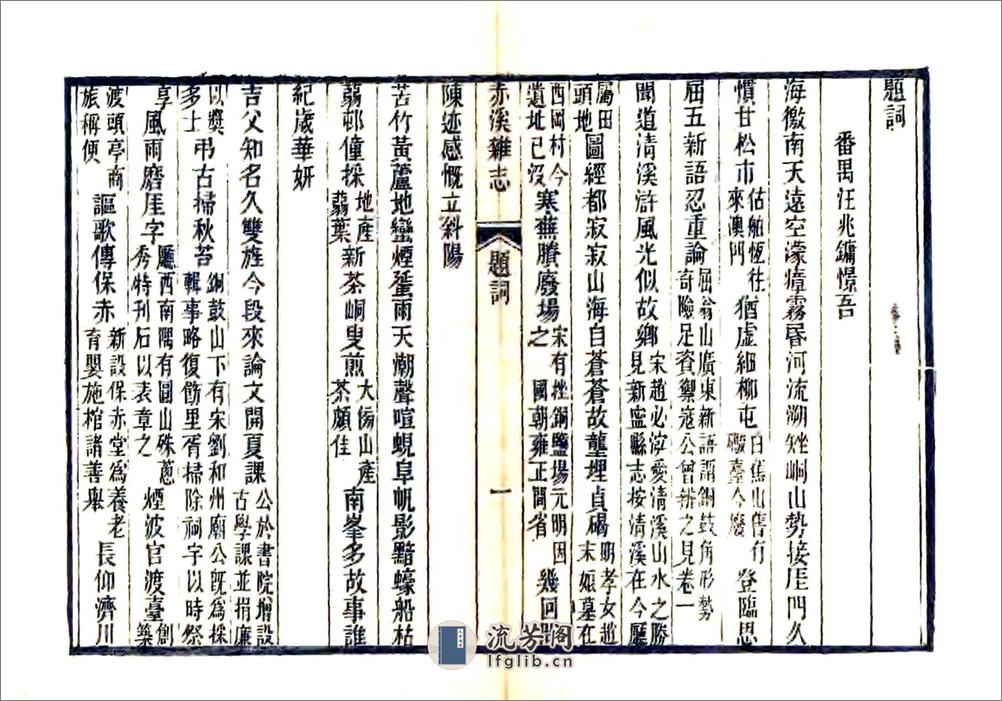 題詞
番禺汪兆鏞憬吾
海徼南天遠空濛瘴霧昏河流湖矬峒山勢接厓門久
慣甘松市估舶恆往來澳門猶虛細柳屯白蕉山舊有礮臺今廢登臨思
屈五新語忍重論屈翁山廣東新語謂銅鼓角形勢奇險足資禦寇公曾辨之見卷一
聞道清溪滸風光似故鄉宋趙必𣶏愛清溪山水之勝見新寧縣志按清溪在今廳
屬田頭地圖經都寂寂山海自蒼蒼故壟埋貞碣明孝女趙末娘墓在
西岡村今遺址已沒寒蕪賸廢場宋有矬銅鹽場元明因之國朝雍正間省幾回
赤溪雜志 題詞 一
陳迹感慨立斜陽
苦竹黃蘆地蠻煙蜑雨天潮聲喧蜆阜帆影黯蠔船枯
蒻邨僮採地產蒻葉新茶峒叟煎大俻山產茶頗佳南峯多故事誰
紀歲華妍
吉父知名久雙旌今段來論文開夏課公於書院增設古學課並捐廉
以獎多士弔古掃秋苔銅鼓山下有宋劉和州廟公旣爲採輯事略復飭里胥掃除祠宇以時祭
享風雨磨厓字廳西南隅有圓山硃蔥秀特刊石以表章之煙波官渡臺創築
渡頭亭商旅稱便謳歌傳保赤新設保赤堂爲養老育嬰施棺諸善舉長仰濟川
流芳阁
lfglib.cn